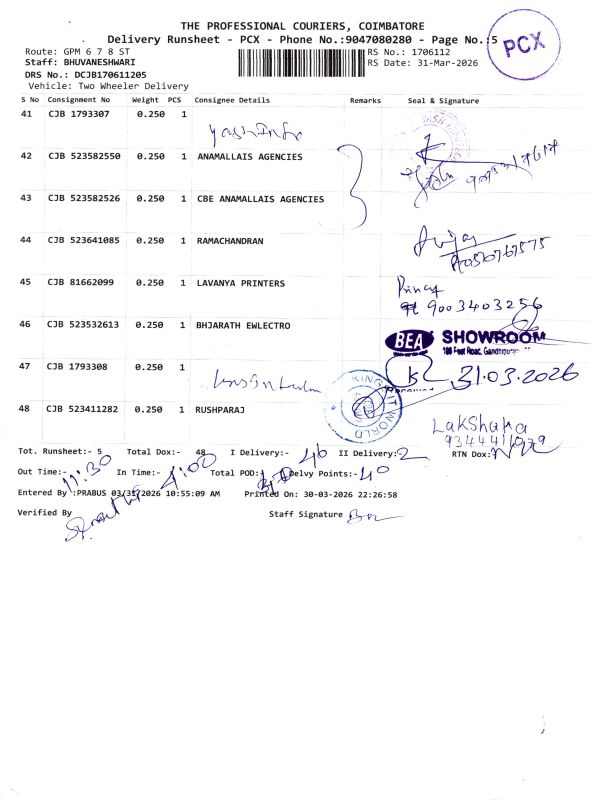 THE PROFESSIONAL COURIERS, COIMBATORE
Delivery Runsheet - PCX - Phone No.:9047080280 - Page No.:5
PCX
Route: GPM 6 7 8 ST
RS No.: 1706112
Staff: BHUVANESHWARI
RS Date: 31-Mar-2026
DRS No.: DCJB170611205
Vehicle: Two Wheeler Delivery
S No Consignment No Weight PCS Consignee Details Remarks Seal & Signature
41 CJB 1793307 0.250 1
42 CJB 523582550 0.250 1 ANAMALLAIS AGENCIES
43 CJB 523582526 0.250 1 CBE ANAMALLAIS AGENCIES
44 CJB 523641085 0.250 1 RAMACHANDRAN
45 CJB 81662099 0.250 1 LAVANYA PRINTERS
9003403256
46 CJB 523532613 0.250 1 BHJARATH EWLECTRO
BEA SHOWROOM
100 Feet Road,
47 CJB 1793308 0.250 1
31.03.2026
48 CJB 523411282 0.250 1 RUSHPARAJ
Tot. Runsheet:- 5 Total Dox:- 48 I Delivery:- 46 II Delivery:- 2 RTN Dox:-
Out Time:- 11:30 In Time:- 4:00 Total POD:- Delvy Points:- 40
Entered By :PRABUS 03/31/2026 10:55:09 AM Printed On: 30-03-2026 22:26:58
Verified By Staff Signature